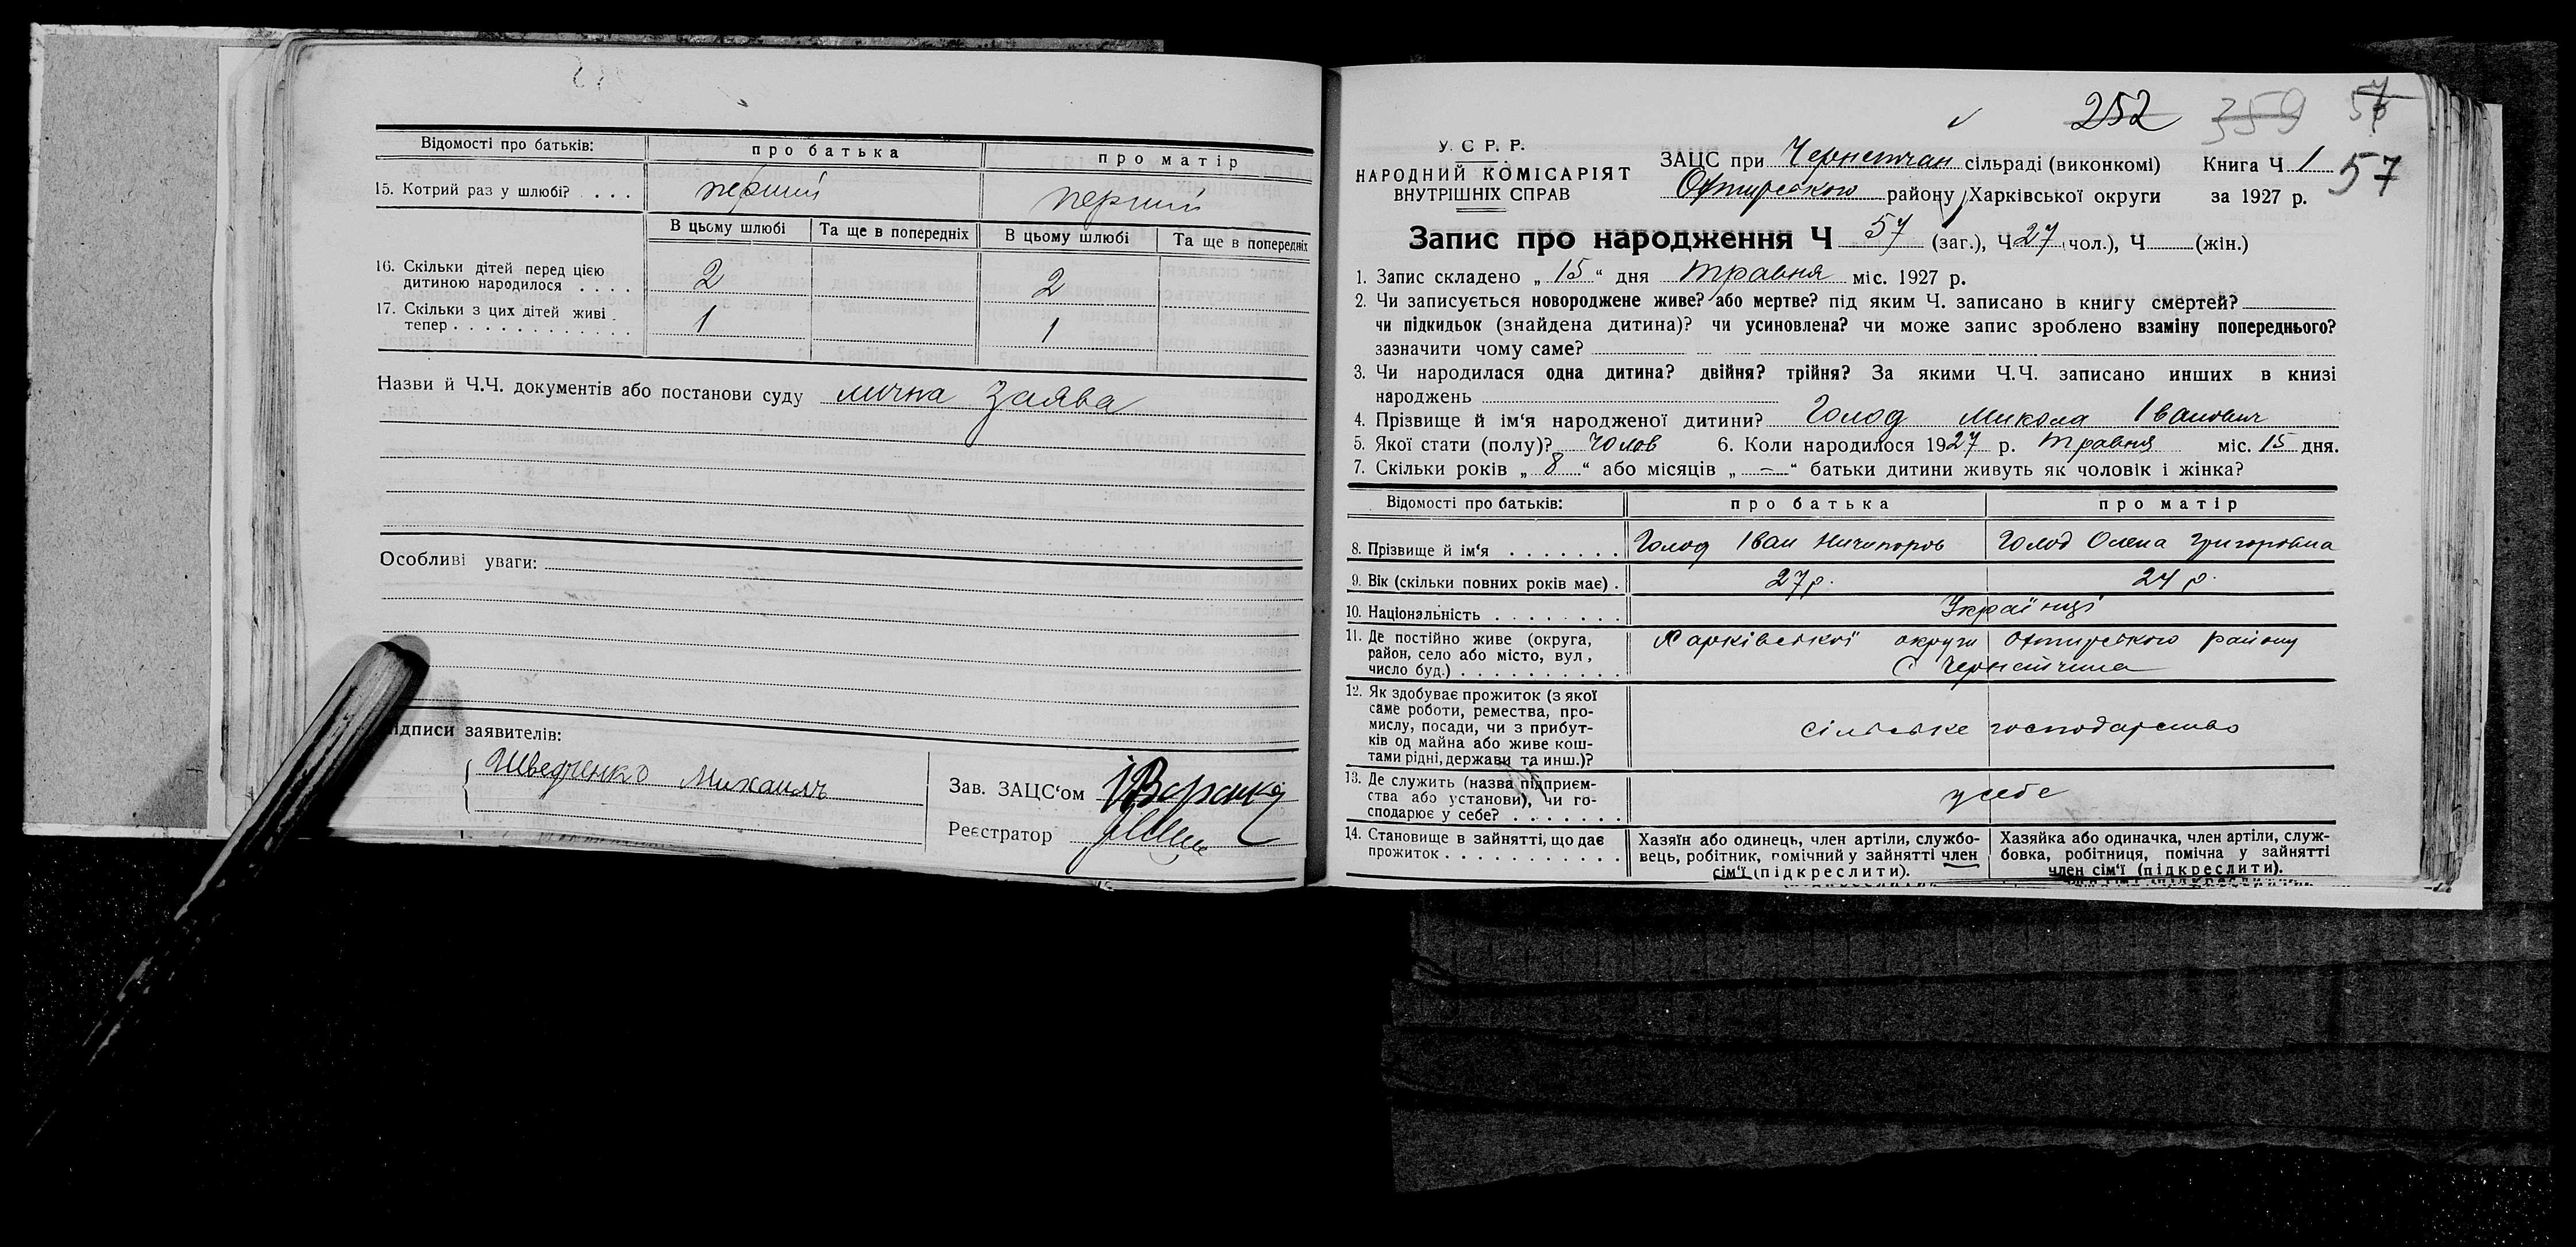 Відомості про батьків: про батька про матір
15. Котрий раз у шлюбі? . . . . перший перший
В цьому шлюбі Та ще в попередніх В цьому шлюбі Та ще в попередніх
16. Скільки дітей перед цією
дитиною народилося . . . . 2 2
17. Скільки з цих дітей живі
тепер . . . . . . . . . . . . . 1 1
Назви й Ч.Ч. документів або постанови суду лична заява
Особливі уваги:
ідписи заявителів:
Михаилъ
Зав. ЗАЦС‘ом
Реєстратор
252 359 57
У. С. Р. Р.
НАРОДНИЙ КОМІСАРІЯТ
ВНУТРІШНІХ СПРАВ
ЗАЦС при Чернетчан сільраді (виконкомі) Книга Ч 1
Охтирського району Харківської округи за 1927 р.
Запис про народження Ч 57 (заг.), Ч 27 (чол.), Ч (жін.)
1. Запис складено „ 15 “ дня травня міс. 1927 р.
2. Чи записується новороджене живе? або мертве? під яким Ч. записано в книгу смертей?
чи підкидьок (знайдена дитина)? чи усиновлена? чи може запис зроблено взаміну попереднього?
зазначити чому саме?
3. Чи народилася одна дитина? двійня? трійня? За якими Ч.Ч. записано инших в книзі
народжень
4. Прізвище й ім‘я народженої дитини? Голод Микола Іванович
5. Якої стати (полу)? чолов 6. Коли народилося 1927 р. травня міс. 15 дня.
7. Скільки років „ 8 “ або місяців „ — “ батьки дитини живуть як чоловік і жінка?
Відомості про батьків: про батька про матір
8. Прізвище й ім‘я . . . . . . . Голод Іван Ничипоров Голод Олена Григоровна
9. Вік (скільки повних років має) . 27 р. 24 р.
10. Національність . . . . . . . . Українці
11. Де постійно живе (округа,
район, село або місто, вул,
число буд.) . . . . . . . . . . Харківської округи Охтирського району
С Чернетчина
12. Як здобуває прожиток (з якої
саме роботи, ремества, про-
мислу, посади, чи з прибут-
ків од майна або живе кош-
тами рідні, держави та инш.)? сільське господарство
13. Де служить (назва підприєм-
ства або установи), чи го-
сподарює у себе? . . . . . . . у себе
14. Становище в зайнятті, що дає
прожиток . . . . . . . . . . . .
Хазяїн або одинець, член артіли, службо-
вець, робітник, помічний у зайнятті член
сім‘ї (підкреслити).
Хазяйка або одиначка, член артіли, служ-
бовка, робітниця, помічна у зайнятті
член сім‘ї (підкреслити).
57